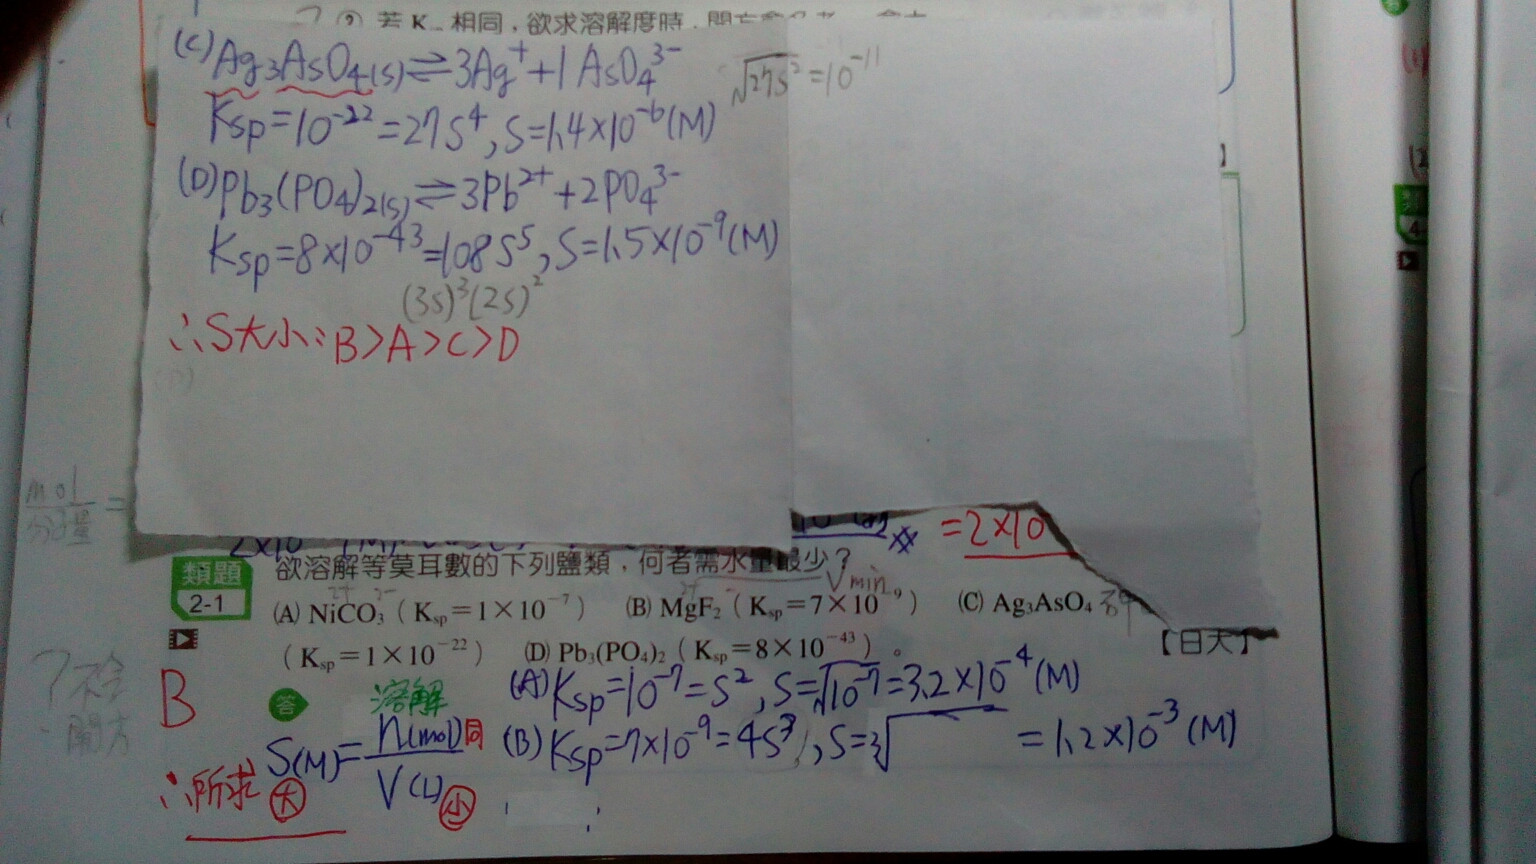 ② 若 K 相同,欲求溶解度時,開方
(C) Ag₃AsO₄(s) ⇌ 3Ag⁺ + 1 AsO₄³⁻
√27 S² = 10⁻¹¹
Ksp = 10⁻²² = 27S⁴, S = 1.4×10⁻⁶ (M)
(D) Pb₃(PO₄)₂(s) ⇌ 3Pb²⁺ + 2PO₄³⁻
Ksp = 8×10⁻⁴³ = 108S⁵, S = 1.5×10⁻⁹ (M)
(3S)³(2S)²
∴ S大小: B > A > C > D
(D)
mol
分子量 =
= 2×10
類題
2-1
欲溶解等莫耳數的下列鹽類,何者需水量最少?
Vmin
(A) NiCO₃(Ksp=1×10⁻⁷) (B) MgF₂(Ksp=7×10⁻⁹) (C) Ag₃AsO₄
(Ksp=1×10⁻²²) (D) Pb₃(PO₄)₂(Ksp=8×10⁻⁴³)。
【日大】
B
答
溶解
S(M) = n(mol)同 / V(L)小
∴所求 大
(A) Ksp = 10⁻⁷ = S², S = √10⁻⁷ = 3.2×10⁻⁴ (M)
(B) Ksp = 7×10⁻⁹ = 4S³, S = ³√ = 1.2×10⁻³ (M)
開方